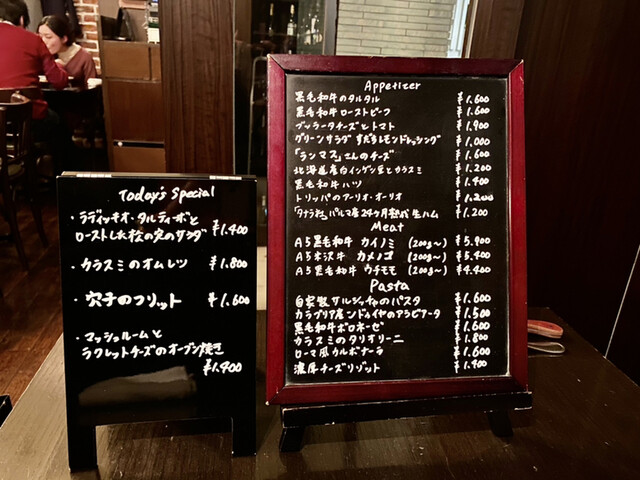 Today's Special
・ラディッキオ・タルティーボと
ローストした松の実のサラダ ¥1.400
・カラスミのオムレツ ¥1.800
・穴子のフリット ¥1.600
・マッシュルームと
ラクレットチーズのオーブン焼き
¥1.400
Appetizer
黒毛和牛のタルタル ¥1.600
黒毛和牛ローストビーフ ¥1.600
ブッラータチーズとトマト ¥1.900
グリーンサラダ すだちレモンドレッシング ¥1.000
「ランマス」さんのチーズ ¥1.600
北海道産白インゲン豆とカラスミ ¥1.200
黒毛和牛ハツ ¥1.400
トリッパのアーリオ・オーリオ ¥1.200
パルマ産24ヶ月熟成 生ハム ¥1.200
Meat
A5黒毛和牛 カイノミ (200g〜) ¥5.900
A5米沢牛 カメノコ (200g〜) ¥5.400
A5黒毛和牛 ウチモモ (200g〜) ¥4.400
Pasta
自家製サルシッチャのパスタ ¥1.600
カラブリア産ンドゥイヤのアラビアータ ¥1.500
黒毛和牛ボロネーゼ ¥1.600
カラスミのタリオリーニ ¥1.800
ローマ風カルボナーラ ¥1.600
濃厚チーズリゾット ¥1.400